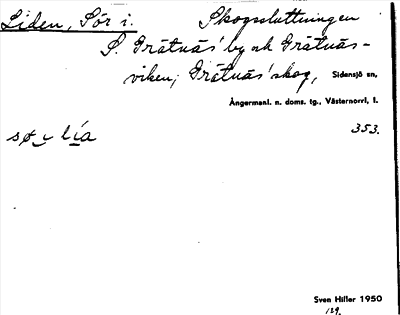 Liden, Sör i. Skogssluttningen
S. Grätnäs' by ok Grätnäs-
viken; Grätnäs' skog, Sidensjö sn,
Ångermanl. n. doms. tg., Västernorrl. l.
353.
sø lía
Sven Hiller 1950
129.